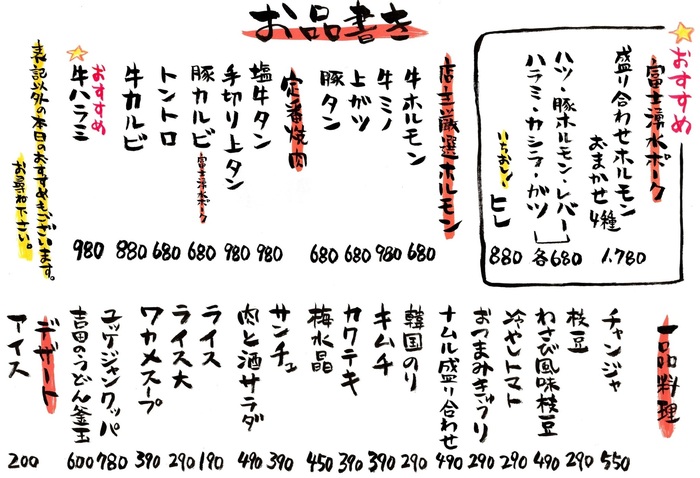 お品書き
おすすめ
富士湧水ポーク
盛り合わせホルモン
おまかせ4種 1,780
ハツ・豚ホルモン・レバー
ハラミ・カシラ・ガツ
各680
いちおし! ヒレ 880
店主厳選ホルモン
牛ホルモン 680
牛ミノ 980
上ガツ 680
豚タン 680
定番焼肉
塩牛タン 980
手切り上タン 980
豚カルビ 富士湧水ポーク 680
トントロ 680
牛カルビ 880
おすすめ
牛ハラミ 980
表記以外の本日のおすすめもございます。
お尋ね下さい。
一品料理
チャンジャ 550
枝豆 290
わさび風味枝豆 490
冷やしトマト 290
おつまみきゅうり 290
ナムル盛り合わせ 490
韓国のり 290
キムチ 390
カクテキ 390
梅水晶 450
サンチュ 390
肉と酒サラダ 490
ライス 190
ライス大 290
ワカメスープ 390
ユッケジャンクッパ 780
吉田のうどん釜玉 600
デザート
アイス 200